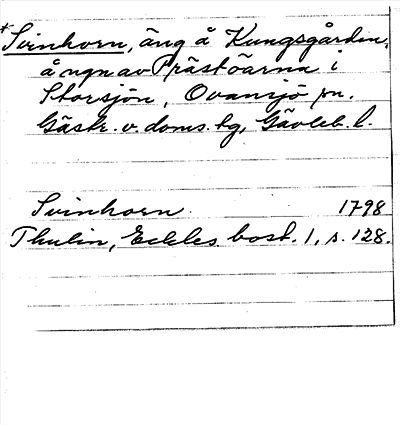 *Svinhorn, äng å Kungsgården,
å ngn av Prästöarna i
Storsjön, Ovansjö sn.
Gästr. v. doms. tg, Gävleb. l.
Svinhorn 1798
Thulin, Eckles. bost. 1, s. 128.